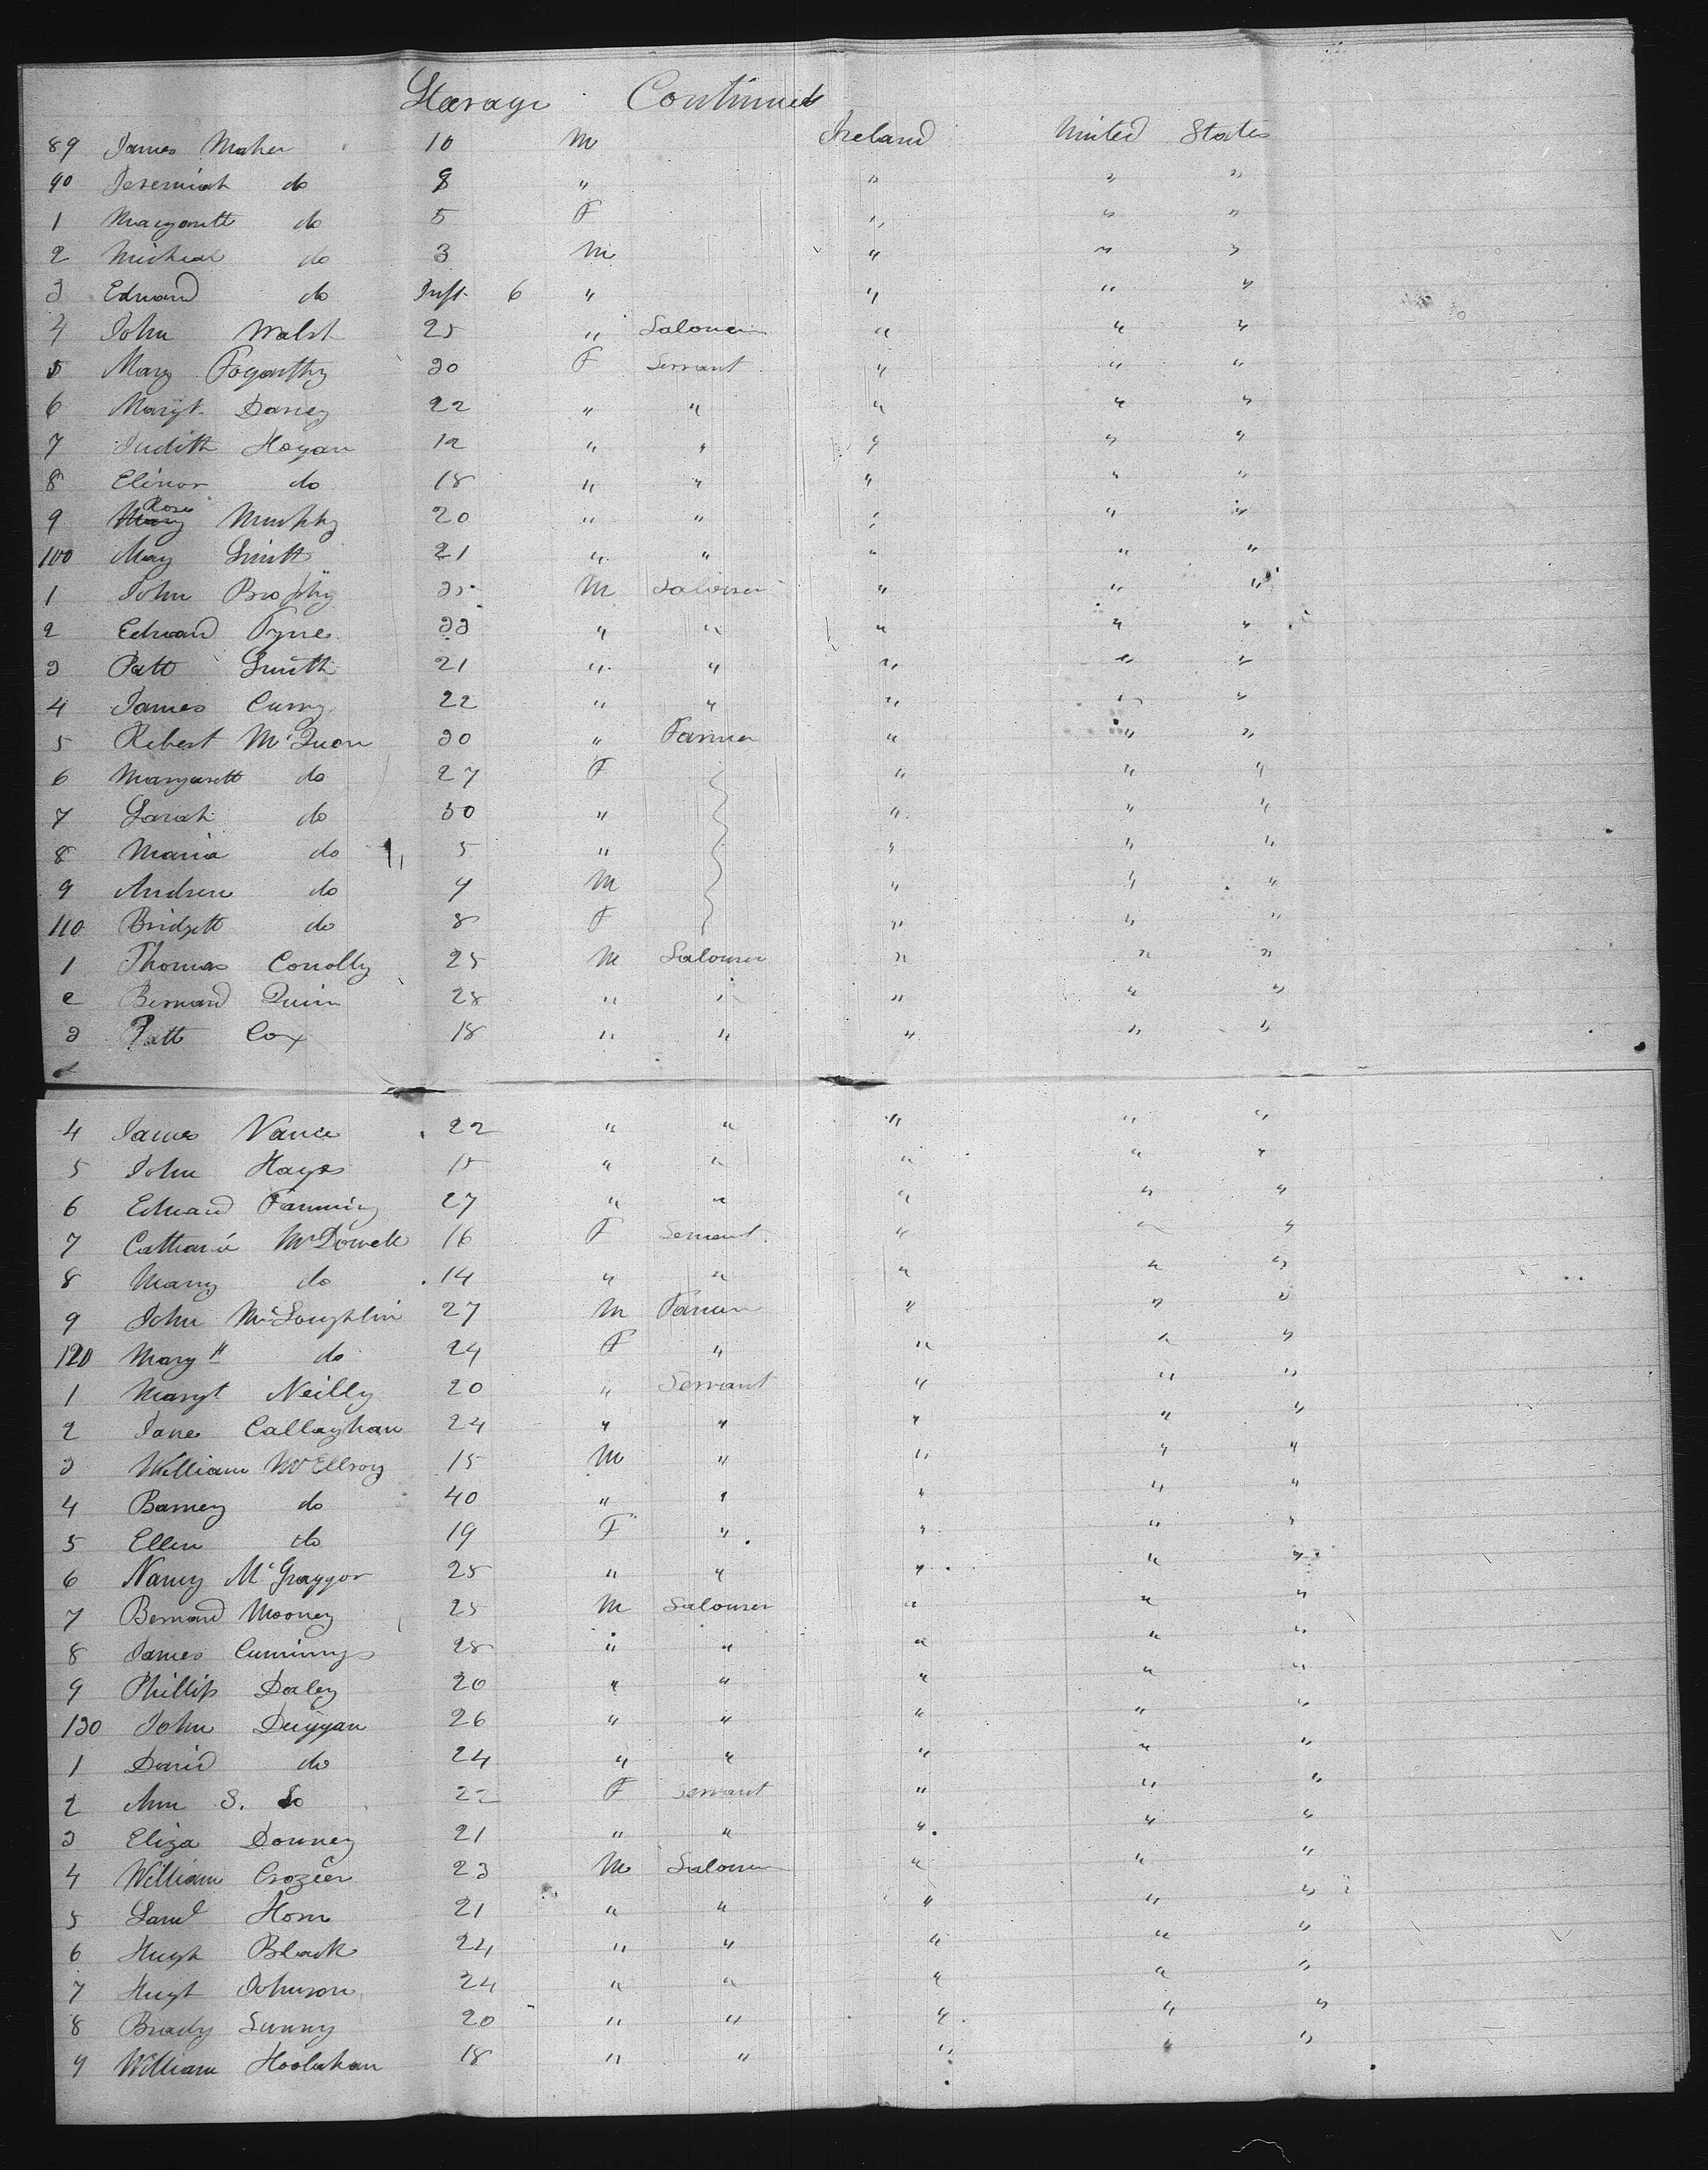 Stearage Continued
89 James Maher 10 M Ireland United States
90 Jeremiah do 8 " " " "
1 Margarett do 5 F " " "
2 Micheal do 3 M " " "
3 Edward do Inft. 6 " " " "
4 John Walsh 25 " Labourer " " "
5 Mary Fogarthy 30 F Servant " " "
6 Margt. Darcy 22 " " " " "
7 Judith Hogan 12 " " " " "
8 Elinor do 18 " " " " "
9 Rose Murphy 20 " " " " "
100 May Smith 21 " " " " "
1 John Brophy 35 M Labourer " " "
2 Edward Pyne 33 " " " " "
3 Patt Smith 21 " " " " "
4 James Curry 22 " " " " "
5 Robert McQuon 30 " Farmer " " "
6 Margarett do 27 F " " "
7 Sarah do 50 " " " "
8 Maria do 5 " " " "
9 Andrew do 4 M " " "
110 Bridgett do 8 F " " "
1 Thomas Conolly 25 M Labourer " " "
2 Bernard Quinn 28 " " " " "
3 Patt Cox 18 " " " " "
4 James Vance 22 " " " " "
5 John Hayes 15 " " " " "
6 Edward Fanning 27 " " " " "
7 Catharie McDowell 16 F Servant " " "
8 Marry do 14 " " " " "
9 John McLoughlin 27 M Farmer " " "
120 Mary H do 24 F " " " "
1 Margt Neilly 20 " Servant " " "
2 Jane Callaghan 24 " " " " "
3 William McEllroy 15 M " " " "
4 Barney do 40 " " " " "
5 Ellen do 19 F " " " "
6 Nancy McGraggor 25 " " " " "
7 Bernard Mooney 25 M Labourer " " "
8 James Cummings 28 " " " " "
9 Phillip Daley 20 " " " " "
130 John Duggan 26 " " " " "
1 David do 24 " " " " "
2 Ann S. Do 22 F Servant " " "
3 Eliza Downey 21 " " " " "
4 William Crozier 23 M Labourer " " "
5 Saml Horn 21 " " " " "
6 Hugh Black 24 " " " " "
7 Hugh Johnson 24 " " " " "
8 Brady Sunny 20 " " " " "
9 William Hoolahan 18 " " " " "